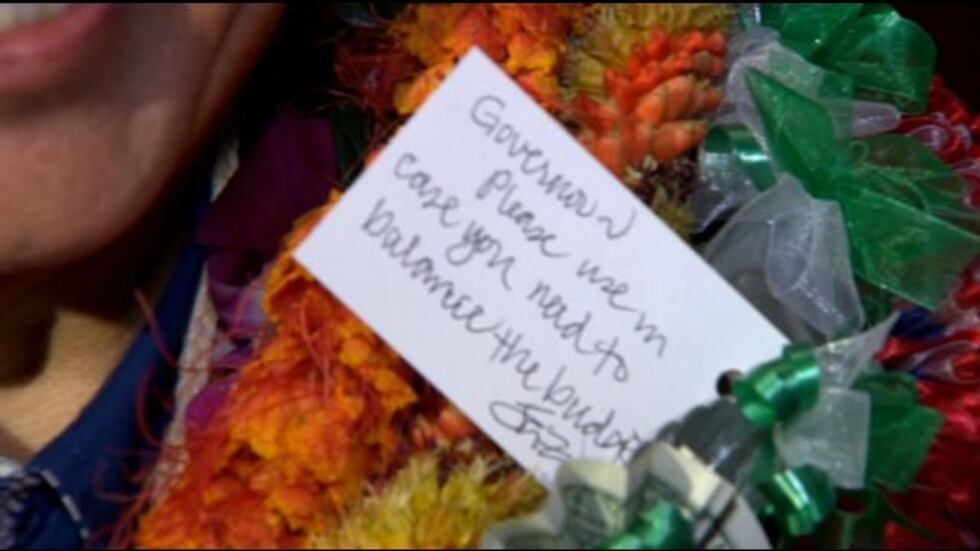 Governor ~
Please use in
case you need to
balance the budget